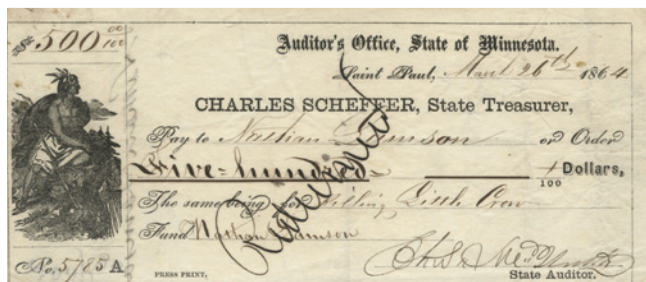 $500 00/100
Auditor's Office, State of Minnesota.
Saint Paul, March 26th 1864
CHARLES SCHEFFER, State Treasurer,
Pay to Nathan Lamson or Order
Five-hundred Dollars,
100
The same being for Killing Little Crow
Fund Nathan Lamson
Redeemed
No. 5785 A
PRESS PRINT.
State Auditor.